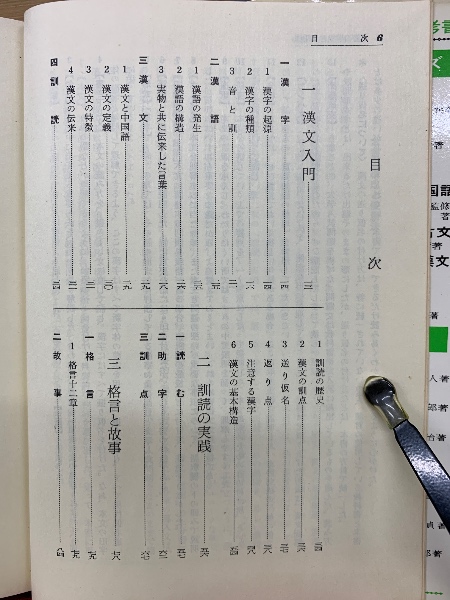 目 次 6
目 次
一 漢文入門……一三
一 漢 字……一四
1 漢字の起源……一四
2 漢字の種類
3 音 と 訓
二 漢 語……二五
1 漢語の発生……二五
2 漢語の構造……二六
3 実物と共に伝来した言葉
三 漢 文……二九
1 漢文と中国語……二九
2 漢文の定義……三〇
3 漢文の特徴……三一
4 漢文の伝来
四 訓 読……三四
1 訓読の歴史……三四
2 漢文の訓点
3 送り仮名
4 返り点
5 注意する漢字
6 漢文の基本構造
二 訓読の実践
一 読 む
二 助 字
三 訓 点
三 格言と故事
一 格 言
1 格言十二章
二 故 事
国語
監修
著
古文
著
漢文
著
人著
郎著
治著
著
貞著
郎著